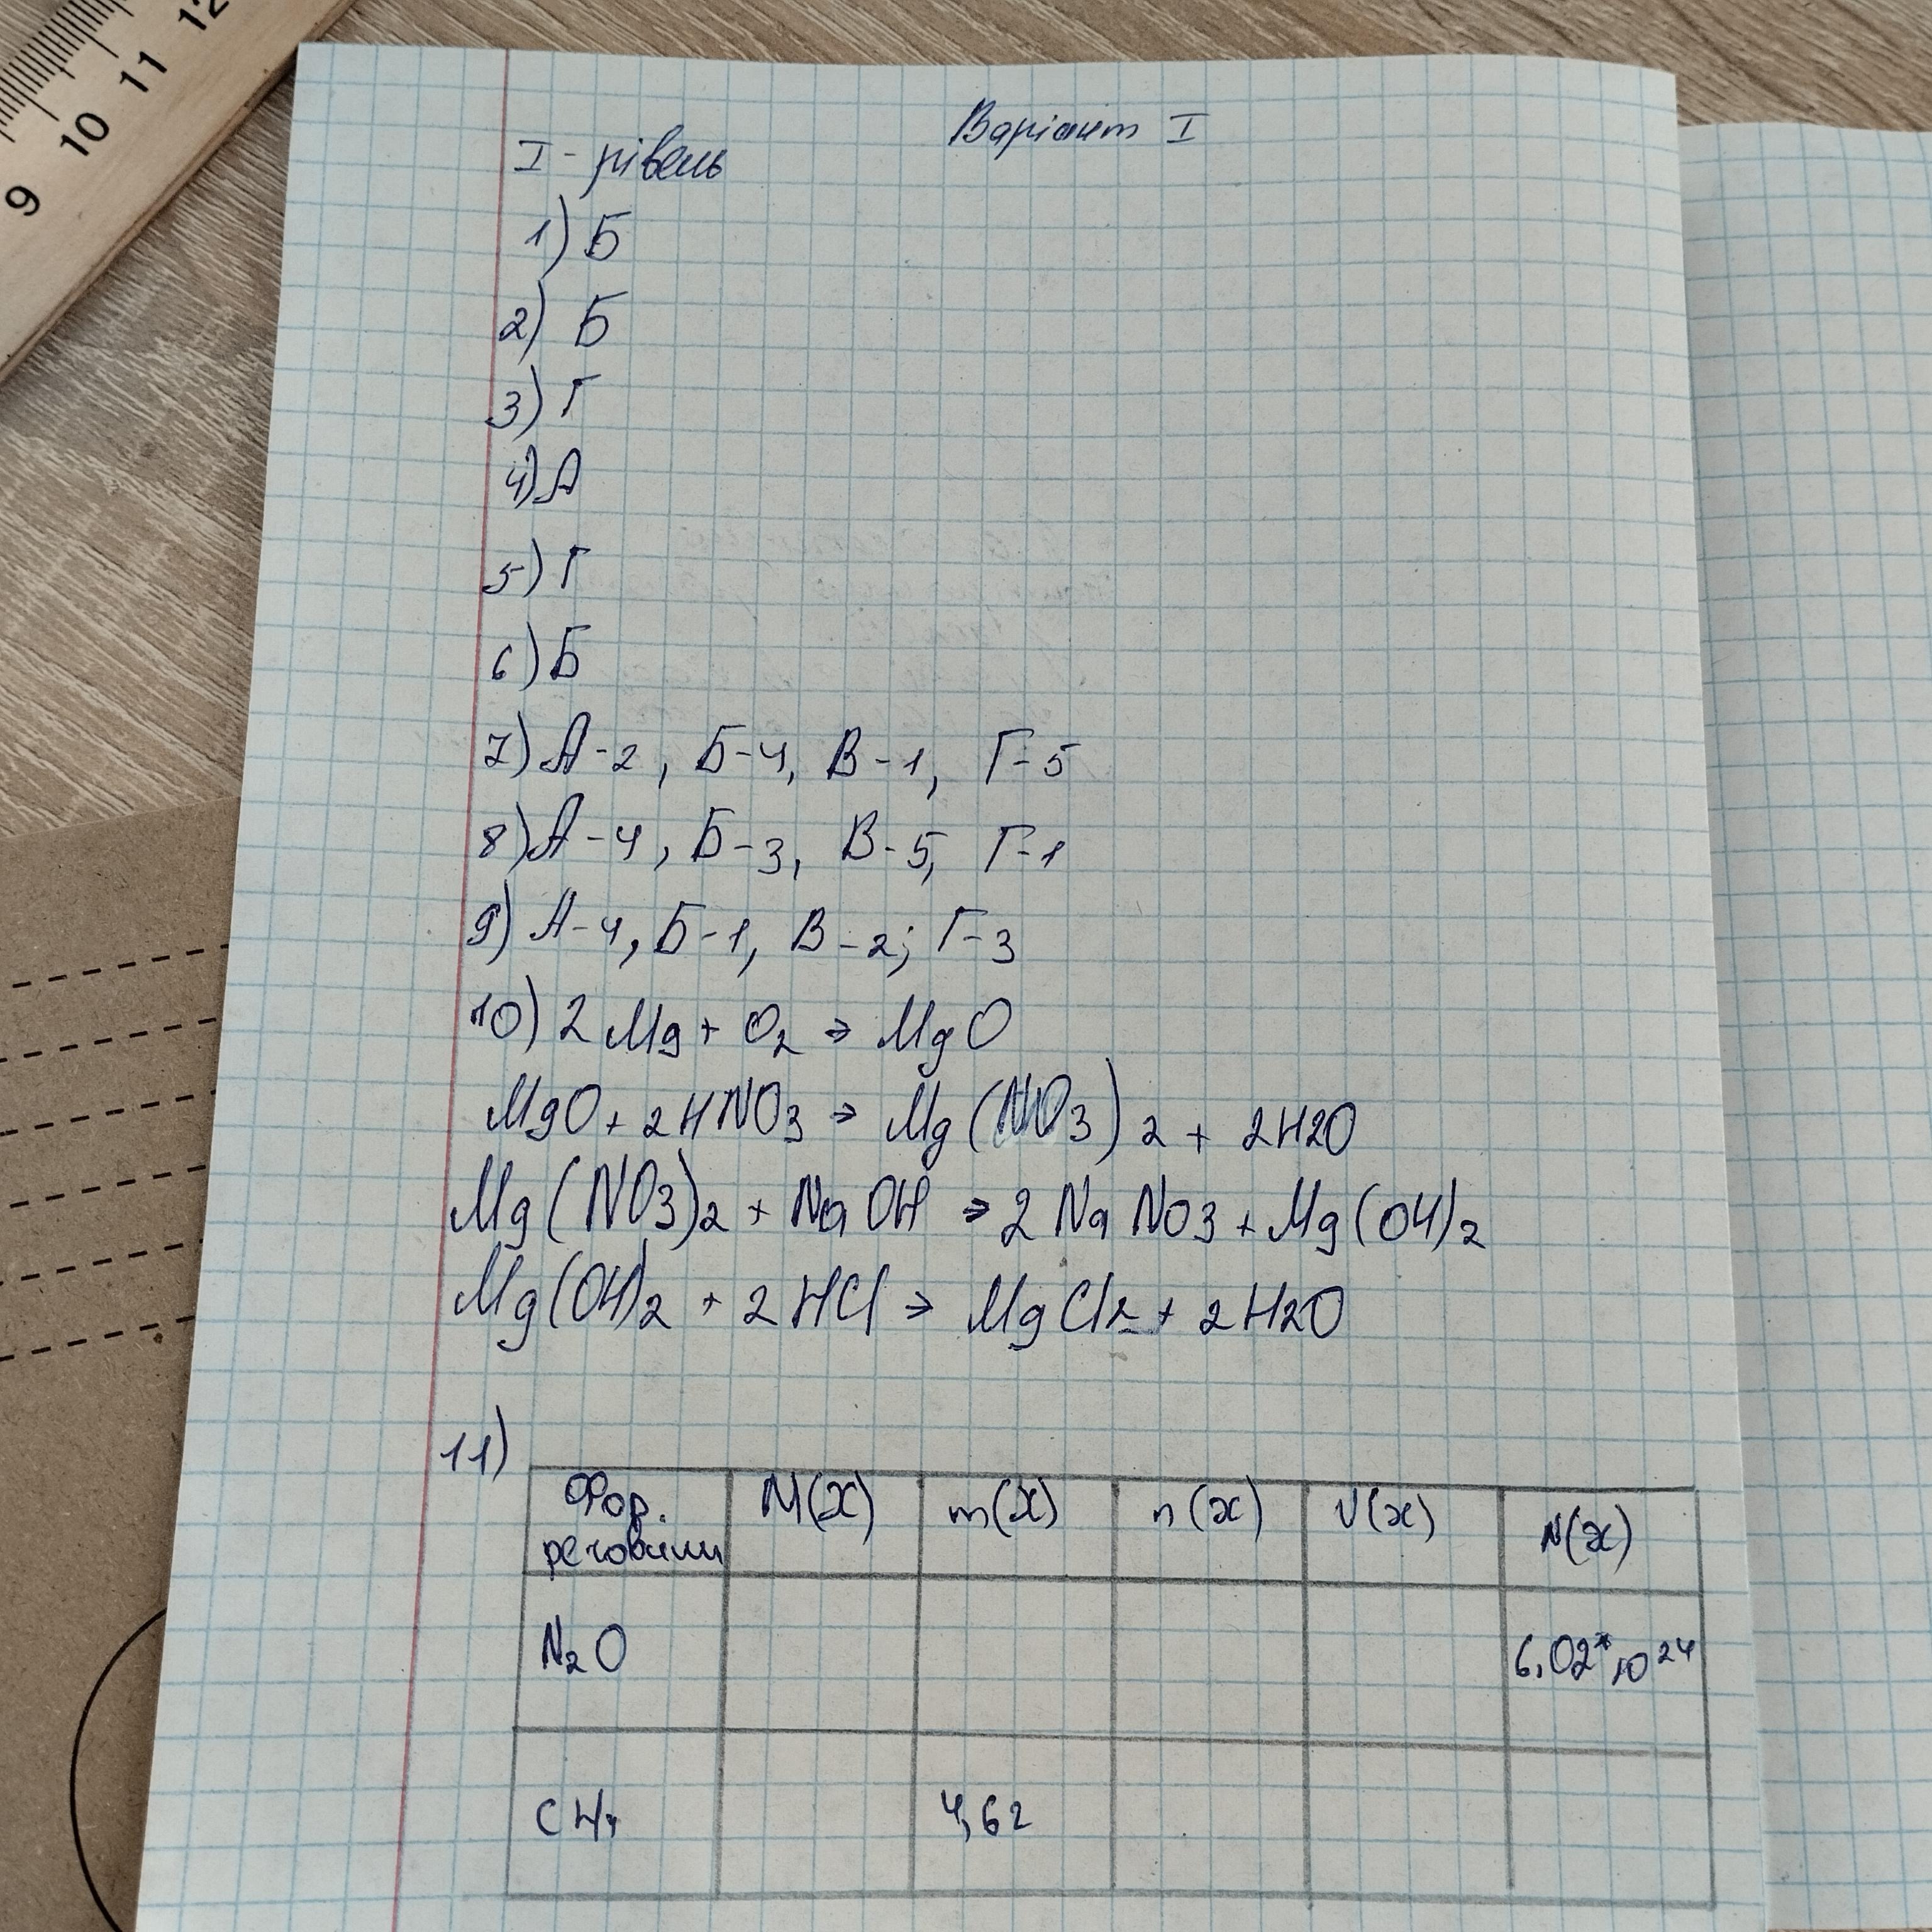 9 10 11 12
Варіант I
I - рівень
1) Б
2) Б
3) Г
4) А
5) Г
6) Б
7) А-2, Б-4, В-1, Г-5
8) А-4, Б-3, В-5, Г-1
9) А-4, Б-1, В-2; Г-3
10) 2Mg + O₂ → MgO
MgO + 2HNO3 → Mg(NO3)2 + 2H2O
Mg(NO3)2 + NaOH → 2NaNO3 + Mg(OH)2
Mg(OH)2 + 2HCl → MgCl2 + 2H2O
11)
Фор. речовини M(x) m(x) n(x) V(x) N(x)
N₂O 6,02*10²⁴
CH₄ 4,6г